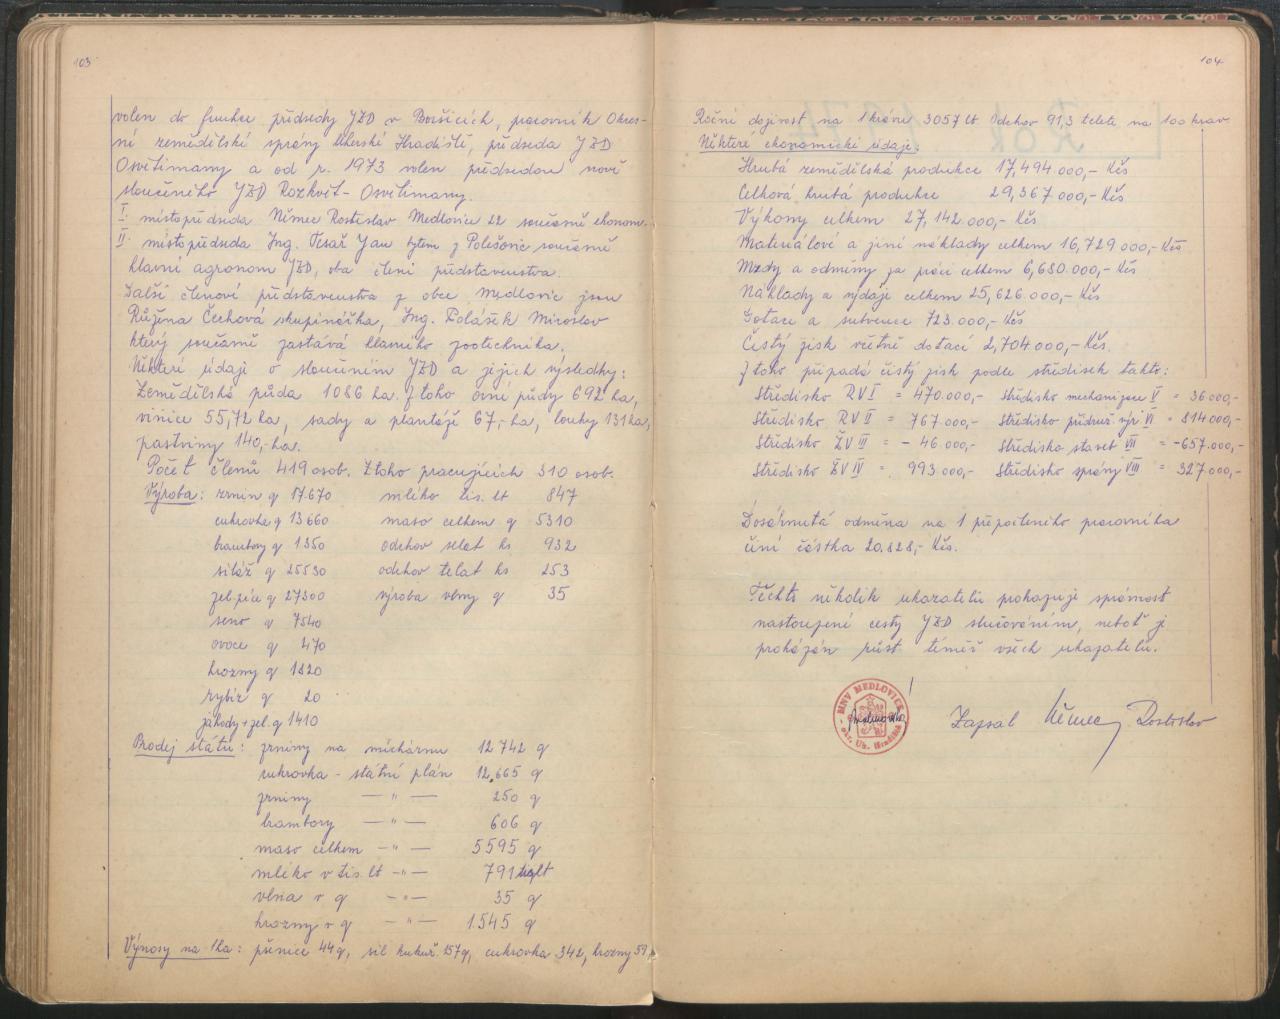 103
volen do funkce předsedy JZD v Boršicích, pracovník Okres-
ní zemědělské správy Uherské Hradiště, předseda JZD
Osvětimany a od r. 1973 volen předsedou nově
sloučeného JZD Rozkvět - Osvětimany.
I. místopředseda Němec Rostislav Medlovice 22 současně ekonom.
II. místopředseda Ing. Tesař Jan bytem z Polešovic současně
hlavní agronom JZD, oba členi představenstva.
Další členové představenstva z obce Medlovic jsou
Růžena Čechová skupinářka, Ing. Polášek Miroslav
který současně zastává hlavního zootechnika.
Některé údaje o sloučeném JZD a jejich výsledky:
Zemědělská půda 1086 ha. Z toho orní půdy 692 ha,
vinice 55,72 ha, sady a plantáže 67,- ha, louky 131 ha,
pastviny 140,- ha.
Počet členů 419 osob. Z toho pracujících 310 osob.
Výroba: zrnin q 17.670 mléko tis. lt 847
cukrovka q 13660 maso celkem q 5310
brambory q 1350 odchov selat ks 932
siláž q 25530 odchov telat ks 253
zel. píce q 27300 výroba vlny q 35
seno q 7540
ovoce q 470
hrozny q 1820
rybíz q 20
jahody + zel. q 1410
Prodej státu: zrniny na míchárnu 12 742 q
cukrovka - státní plán 12.665 q
zrniny — " — 250 q
brambory — " — 606 q
maso celkem — " — 5595 q
mléko v tis. lt — " — 791 tis lt
vlna v q — " — 35 q
hrozny v q — " — 1.545 q
Výnosy na 1ha: pšenice 44q, sil. kukuř. 257q, cukrovka 342, hrozny 59
104
Roční dojivost na 1 krávu 3057 lt Odchov 91,3 telete na 100 krav
Některé ekonomické údaje:
Hrubá zemědělská produkce 17,494.000,- Kčs
Celková hrubá produkce 29,367.000,- Kčs
Výkony celkem 27,142.000,- Kčs
Materiálové a jiné náklady celkem 16,729.000,- Kčs
Mzdy a odměny za práci celkem 6,680.000,- Kčs
Náklady a výdaje celkem 25,626.000,- Kčs
Dotace a subvence 723.000,- Kčs
Čistý zisk včetně dotací 2,704.000,- Kčs.
Z toho připadá čistý zisk podle středisek takto:
Středisko RV I = 470.000,- Středisko mechanizace V = 36000,-
Středisko RV II = 767.000,- Středisko přidruž. výr. VI = 814000,-
Středisko ŽV III = - 46.000,- Středisko staveb VII = -657.000,-
Středisko ŽV IV = 993.000,- Středisko správy VIII = 327000,-
Dosáhnutá odměna na 1 přepočteného pracovníka
činí částka 20.828,- Kčs.
Těchto několik ukazatelů prokazuje správnost
nastoupené cesty JZD slučováním, neboť je
prokázán růst téměř všech ukazatelů.
MNV MEDLOVICE
okr. Uh. Hradiště
Zapsal Němec Rostislav